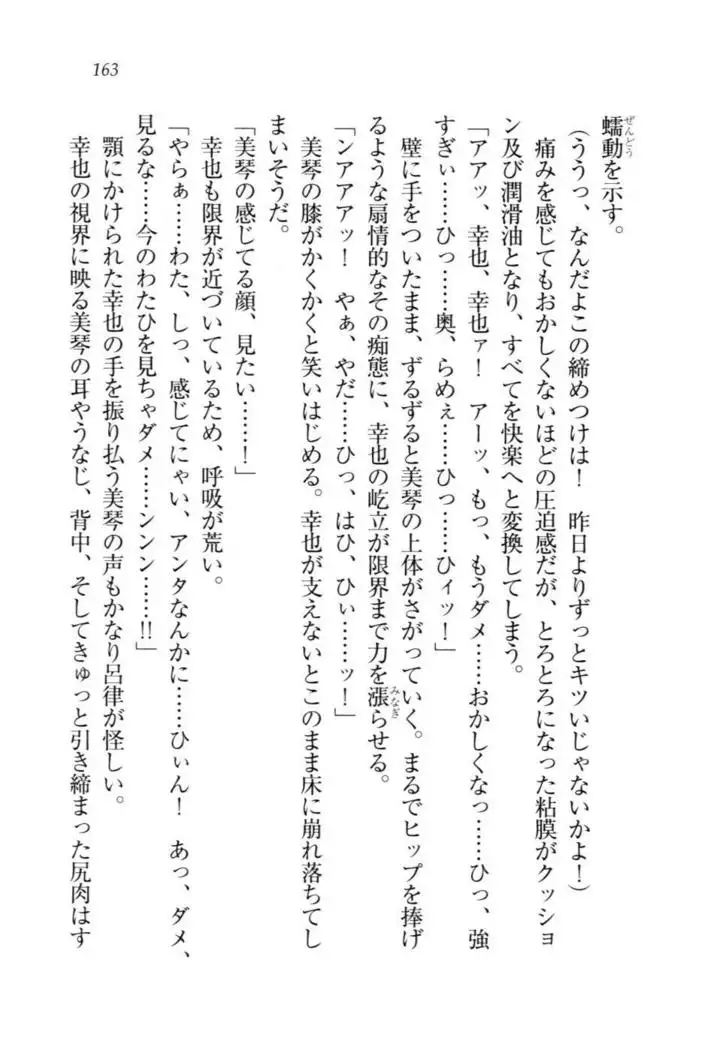 163
蠕動を示す。
(ううっ、なんだよこの締めつけは！　昨日よりずっとキツいじゃないかよ！)
痛みを感じてもおかしくないほどの圧迫感だが、とろとろになった粘膜がクッショ
ン及び潤滑油となり、すべてを快楽へと変換してしまう。
「アアッ、幸也、幸也ァ！　アーッ、もっ、もうダメ……おかしくなっ……ひっ、強
すぎぃ……ひっ……奥、らめぇ……ひっ……ひィッ！」
壁に手をついたまま、ずるずると美琴の上体がさがっていく。まるでヒップを捧げ
るような扇情的なその痴態に、幸也の屹立が限界まで力を漲らせる。
「ンアアアッ！　やぁ、やだ……ひっ、はひ、ひぃ……ッ！」
美琴の膝がかくかくと笑いはじめる。幸也が支えないとこのまま床に崩れ落ちてし
まいそうだ。
「美琴の感じてる顔、見たい……！」
幸也も限界が近づいているため、呼吸が荒い。
「やらぁ……わた、しっ、感じてにゃい、アンタなんかに……ひぃん！　あっ、ダメ、
見るな……今のわたひを見ちゃダメ……ンンン……!!」
顎にかけられた幸也の手を振り払う美琴の声もかなり呂律が怪しい。
幸也の視界に映る美琴の耳やうなじ、背中、そしてきゅっと引き締まった尻肉はす